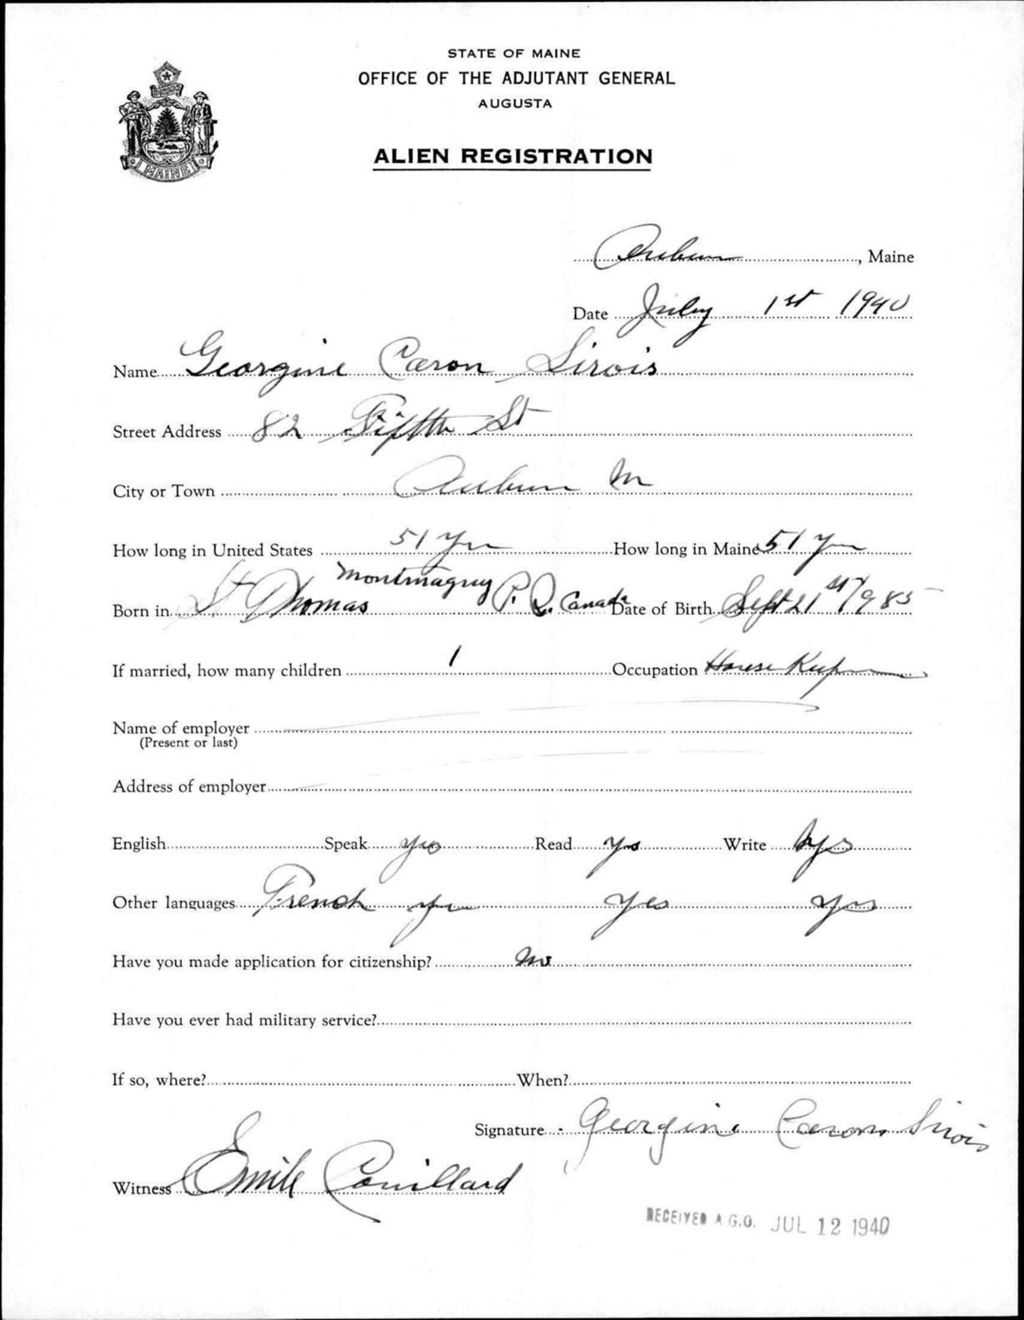 STATE OF MAINE
OFFICE OF THE ADJUTANT GENERAL
AUGUSTA
ALIEN REGISTRATION
MAINE
Auburn, Maine
Date July 1st 1940
Name Georgine Caron Sirois
Street Address 82 Fifth St
City or Town Auburn M
How long in United States 51 Yrs How long in Maine 51 Yrs
Montmagny
Born in St Thomas P. Q. Canada Date of Birth Sept 21st 1985
If married, how many children 1 Occupation House Keeper
Name of employer
(Present or last)
Address of employer
English Speak yes Read yes Write yes
Other languages French yes yes yes
Have you made application for citizenship? no
Have you ever had military service?
If so, where? When?
Signature Georgine Caron Sirois
Witness Emile Couillard
RECEIVED A.G.O. JUL 12 1940